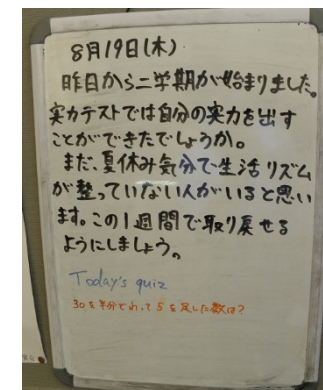 8月19日(木)
昨日から二学期が始まりました。
実力テストでは自分の実力を出す
ことができたでしょうか。
まだ、夏休み気分で生活リズム
が整っていない人がいると思い
ます。この1週間で取り戻せる
ようにしましょう。
Today's quiz
30を半分でわって5を足した数は?